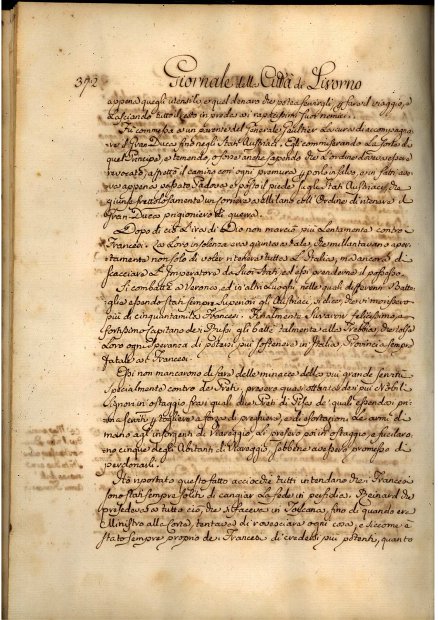 372 Giornale della Città di Livorno
appena quegli utensili, e quel denaro che potea servirgli p il viaggio, e
lasciando tutto il resto in preda ai rapacissimi suoi nemici.
Fù commessa a un parente del Generale Gaultier la cura di accompagna
re il Gran Duca fino negli Stati Austriaci. Egli commiserando la sorte di
quel Principe, e temendo, o forse anche sapendo che l'ordine dovesse essere
revocato, affrettò il camino con ogni premura p porlo in salvo, e in fatti ave
vano appena passato Padova, e posto il piede sugli Stati Austriaci, che
giunse frettolosamente un corriere a Milano coll'Ordine di ritenere il
Gran Duca prigioniero di guerra.
Dopo di ciò l'ira di Dio non marciò più lentamente contro i
Francesi. La loro insolenza era giunta a tale, che millantavano aper
tamente non solo di voler ritenere tutta l'Italia, ma ancora di
scacciare l'Imperatore da suoi Stati, ed essi prenderne il possesso.
Si combattè a Verona, ed in altri Luoghi, nelle quali differenti Batta
glie essendo stati sempre superiori gli Austriaci, si dice, che vi morissero
più di cinquantamila Francesi. Finalmente Suvarow felicissimo, e
fortissimo Capitano dei Russi gli battè talmente alla Trebbia, che tolse
loro ogni speranza di potersi più sostenere in Italia, Provincia sempre
fatale ai Francesi.
Essi non mancarono di fare delle minacce, delle più grandi
specialmente contro dei Preti, presero quasi dei più Nobili
Signori in ostaggio, fra i quali due Preti di Pisa, de' quali essendosi pri
ma serviti p togliere a forza di preghiere, ed esortazioni le armi di
mano agl'insorgenti di Viareggio, li presero poi in ostaggio, e fucilaro
no cinque degli Abitanti di Viareggio, sebbene avessero promesso di
perdonarli.
Hò riportato questo fatto acciocchè tutti intendano che i Francesi
sono stati sempre soliti di cangiar la fede in perfidia. Reinard che
presedeva a tutto ciò, che si faceva in Toscana, fino di quando era
Ministro alla Corte, tentava di rovesciare ogni cosa, e siccome è
stato sempre proprio de' Francesi di credersi più potenti, quanto